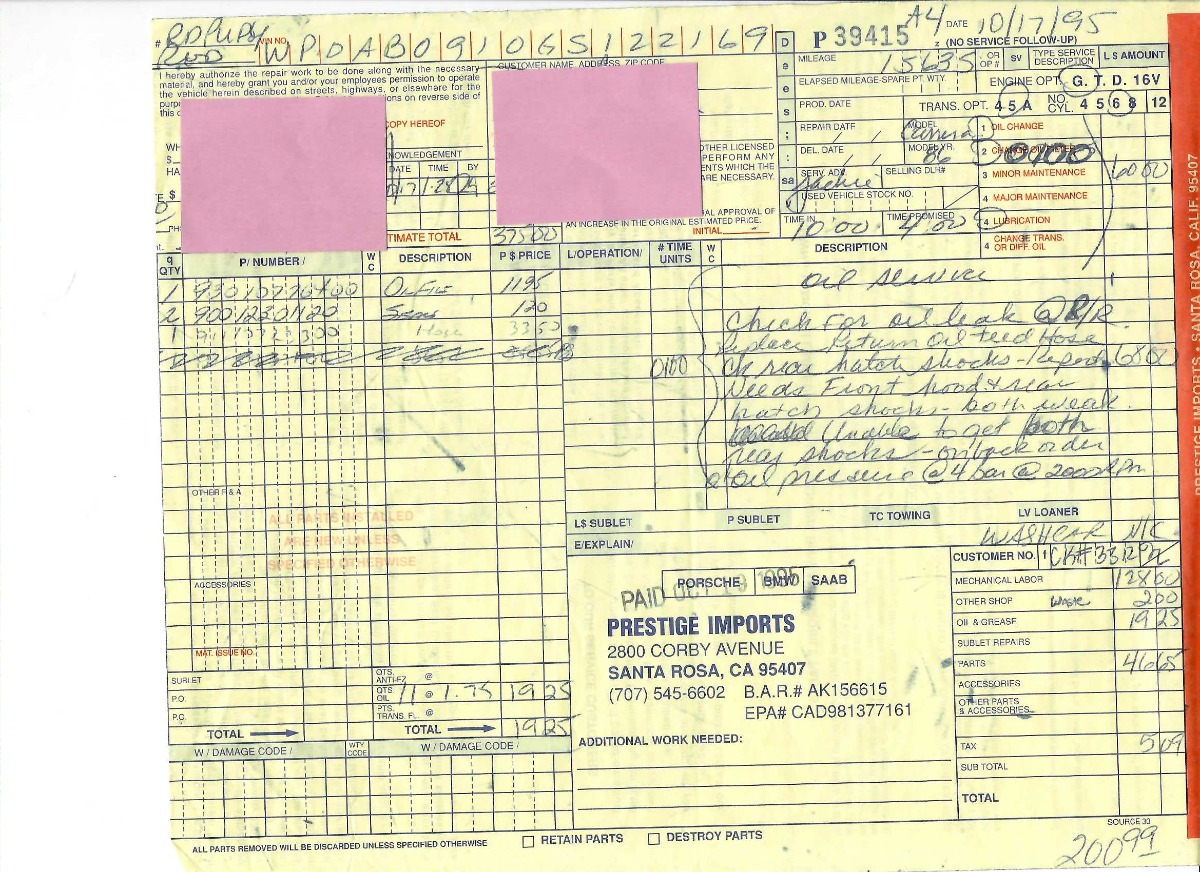 A4 DATE 10/17/95
# VIN NO. WPDAB0910GS122169
P 39415 (NO SERVICE FOLLOW-UP)
MILEAGE 15635 OR OP # SV TYPE SERVICE DESCRIPTION L S AMOUNT
I hereby authorize the repair work to be done along with the necessary
material, and hereby grant you and/or your employees permission to operate
the vehicle herein described on streets, highways, or elsewhere for the
ons on reverse side of
CUSTOMER NAME, ADDRESS, ZIP CODE
ELAPSED MILEAGE-SPARE PT. WTY. ENGINE OPT. G. T. D. 16V
PROD. DATE TRANS. OPT. 4 5 A NO. CYL. 4 5 6 8 12
REPAIR DATE / / MODEL Carrera 1 OIL CHANGE
DEL. DATE / / MODEL YR. 86 2 0100
SERV. ADV. Jackie SELLING DLR# 3 MINOR MAINTENANCE 60 00
USED VEHICLE STOCK NO. 4 MAJOR MAINTENANCE
TIME IN 10:00 TIME PROMISED 4:00 4 LUBRICATION
4 CHANGE TRANS. OR DIFF. OIL
COPY HEREOF
NOWLEDGEMENT
DATE TIME BY
OTHER LICENSED
PERFORM ANY
ENTS WHICH THE
ARE NECESSARY.
AL APPROVAL OF
AN INCREASE IN THE ORIGINAL ESTIMATED PRICE.
INITIAL
TIMATE TOTAL 375 00
q QTY P/ NUMBER / W C DESCRIPTION P $ PRICE L/OPERATION/ # TIME UNITS W C DESCRIPTION
1 93010776400 Oil Fil 11 95
2 90012301120 Seal 1 20
1 Hose 33 50
oil service
Check for oil leak @ R/R.
Replace Return Oil feed Hose
0100 Ck rear hatch shocks - Report 68 00
Needs Front hood & rear
hatch shocks - both weak.
Unable to get both
rear shocks - on back order
oil pressure @ 4 bar @ 2000 RPM
OTHER P & A
ALL PARTS INSTALLED
ARE NEW UNLESS
SPECIFIED OTHERWISE
ACCESSORIES
MAT. ISSUE NO.
L$ SUBLET P SUBLET TC TOWING LV LOANER
E/EXPLAIN/ WASH CAR N/C
CUSTOMER NO. 1 CK# 3312
MECHANICAL LABOR 128 00
OTHER SHOP Waste 2 00
OIL & GREASE 19 25
SUBLET REPAIRS
PARTS 46 65
ACCESSORIES
OTHER PARTS & ACCESSORIES
TAX 5 09
SUB TOTAL
TOTAL
PORSCHE BMW SAAB
PAID OCT 19 1995
PRESTIGE IMPORTS
2800 CORBY AVENUE
SANTA ROSA, CA 95407
(707) 545-6602 B.A.R.# AK156615
EPA# CAD981377161
ADDITIONAL WORK NEEDED:
SUBLET QTS. ANTI-FZ. @
P.O. QTS. OIL 11 @ 1.75 19 25
P.O. PTS. TRANS. FL. @
TOTAL TOTAL 19 25
W / DAMAGE CODE / WTY CODE W / DAMAGE CODE /
ALL PARTS REMOVED WILL BE DISCARDED UNLESS SPECIFIED OTHERWISE RETAIN PARTS DESTROY PARTS
SOURCE 30
200 99
PRESTIGE IMPORTS • SANTA ROSA, CALIF. 95407